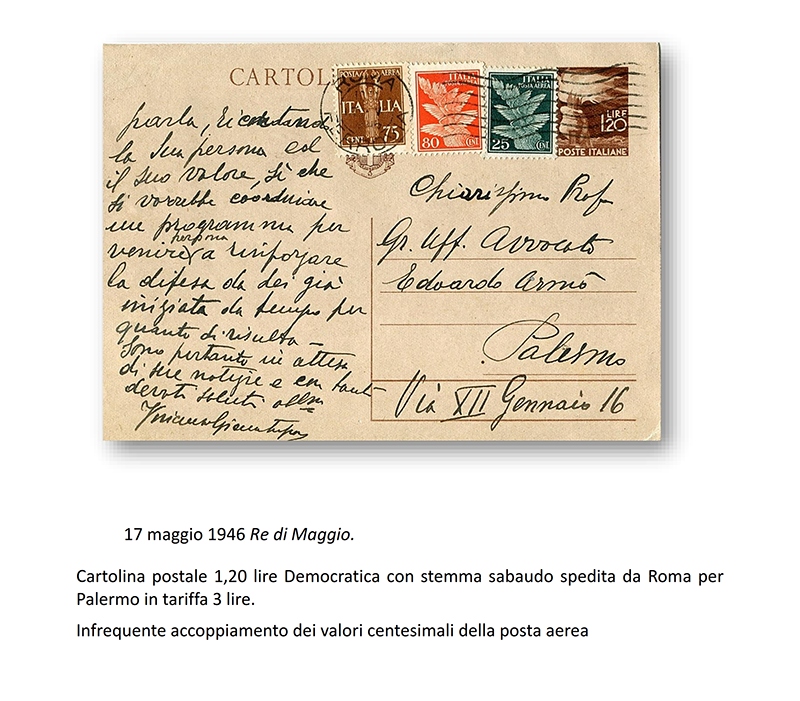 CARTOL
POSTA AEREA
ITALIA
CENT 75
ITALIA
POSTA AEREA
80 CENT.
ITALIA
POSTA AEREA
25 CENT.
LIRE
1,20
POSTE ITALIANE
ROMA
parla, ricontando
la Sua persona col
il suo valore, sì che
si vorrebbe coordinare
un programma per
venire a rinforzare
la difesa da Lei già
iniziata da tempo per
quanto di risulta —
Sono pertanto in attesa
di sue notizie e con tanti
devoti saluti
Chiarissimo Prof
Gr. Uff. Avvocato
Edoardo Armò
Palermo
Via XII Gennaio 16
17 maggio 1946 Re di Maggio.
Cartolina postale 1,20 lire Democratica con stemma sabaudo spedita da Roma per
Palermo in tariffa 3 lire.
Infrequente accoppiamento dei valori centesimali della posta aerea